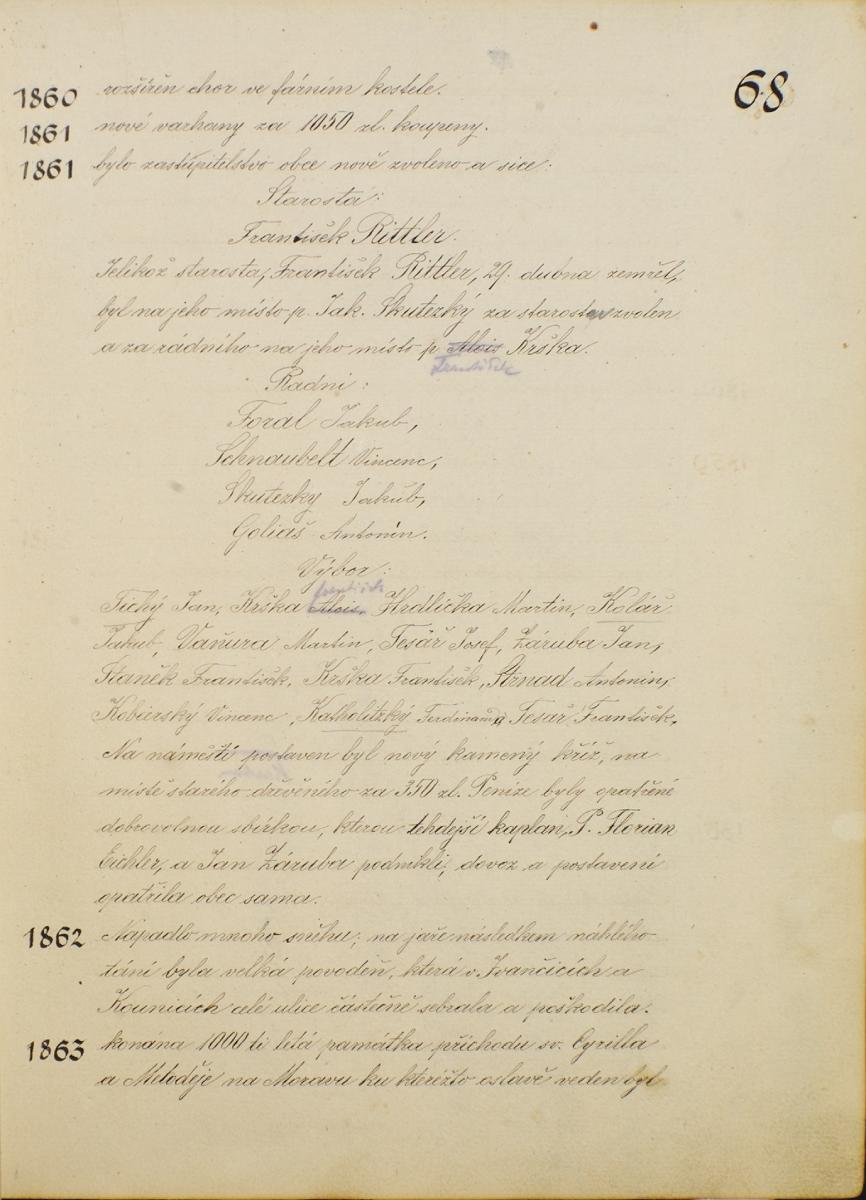 68
1860 rozšířěn chor ve fárním kostele.
1861 nové varhany za 1050 zl. koupeny.
1861 bylo zastupitelstvo obce nově zvoleno a sice:
Starosta:
František Rittler.
Jelikož starosta, František Rittler, 29. dubna zemřel,
byl na jeho místo p. Jak. Skutezký za starostu zvolen
a za rádního na jeho místo p Alois Krška.
František
Radni:
Foral Jakub,
Schnaubelt Vincenc,
Skutezky Jakub,
Goliaš Antonín.
Výbor:
František
Tichý Jan, Krška Alois, Hrdlička Martin, Kolář
Jakub, Vaňura Martin, Tesář Josef, Záruba Jan,
Staněk František, Krška František, Strnad Antonin,
Kobierský Vincenc, Katholitzký Ferdinand, Tesař František.
Na náměstí postaven byl nový kamený kříž, na
místě starého dřevěného za 350 zl. Penize byly opatřené
dobrovolnou sbírkou, kterou tehdejší kaplan, P. Florian
Eichler, a Jan Záruba podnikli; dovoz a postavení
opatřila obec sama.
1862 Napadlo mnoho sněhu; na jaře následkem náhlého
tání byla velká povodeň, která v Ivančicích a
Kounicích celé ulice částečně sebrala a poškodila.
1863 konána 1000 ti letá památka příchodu sv. Cyrilla
a Metoděje na Moravu ku kteréžto oslavě veden byl